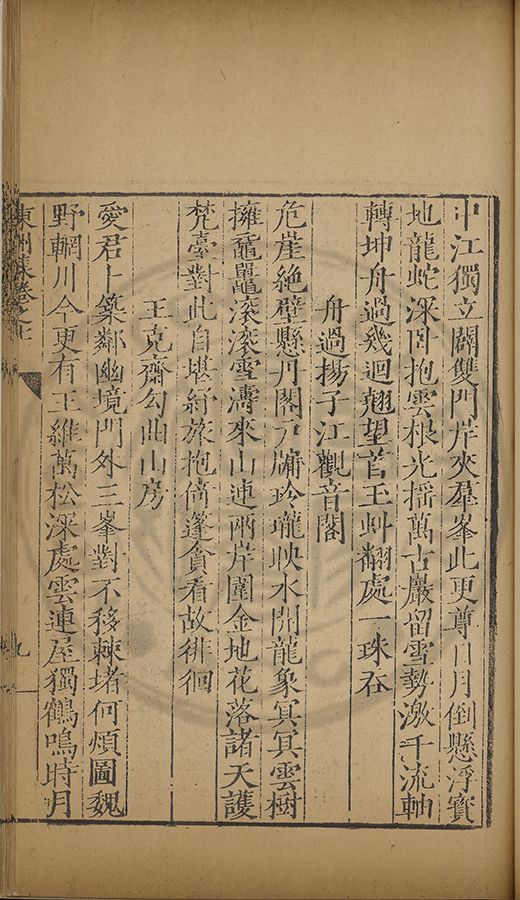 中江獨立闢雙門岸夾羣峯此更尊日月倒懸浮寶
地龍蛇深卧抱雲根光揺萬古嚴留雪勢激千流軸
轉坤舟過幾迴翹望苦玉虬翻處一珠吞
舟過揚子江觀音閣
危崖絶壁懸丹閣戶牖玲瓏映水開龍象冥冥雲樹
擁黿鼉滚滚雪濤來山連兩岸圍金地花落諸天護
梵臺對此自堪紓旅抱倚蓬貪看故徘徊
王克齋勾曲山房
愛君卜築鄰幽境門外三峯對不移棘堵何煩圖魏
野輞川今更有王維萬松深處雲連屋獨鶴鳴時月
東洲集卷之七
九